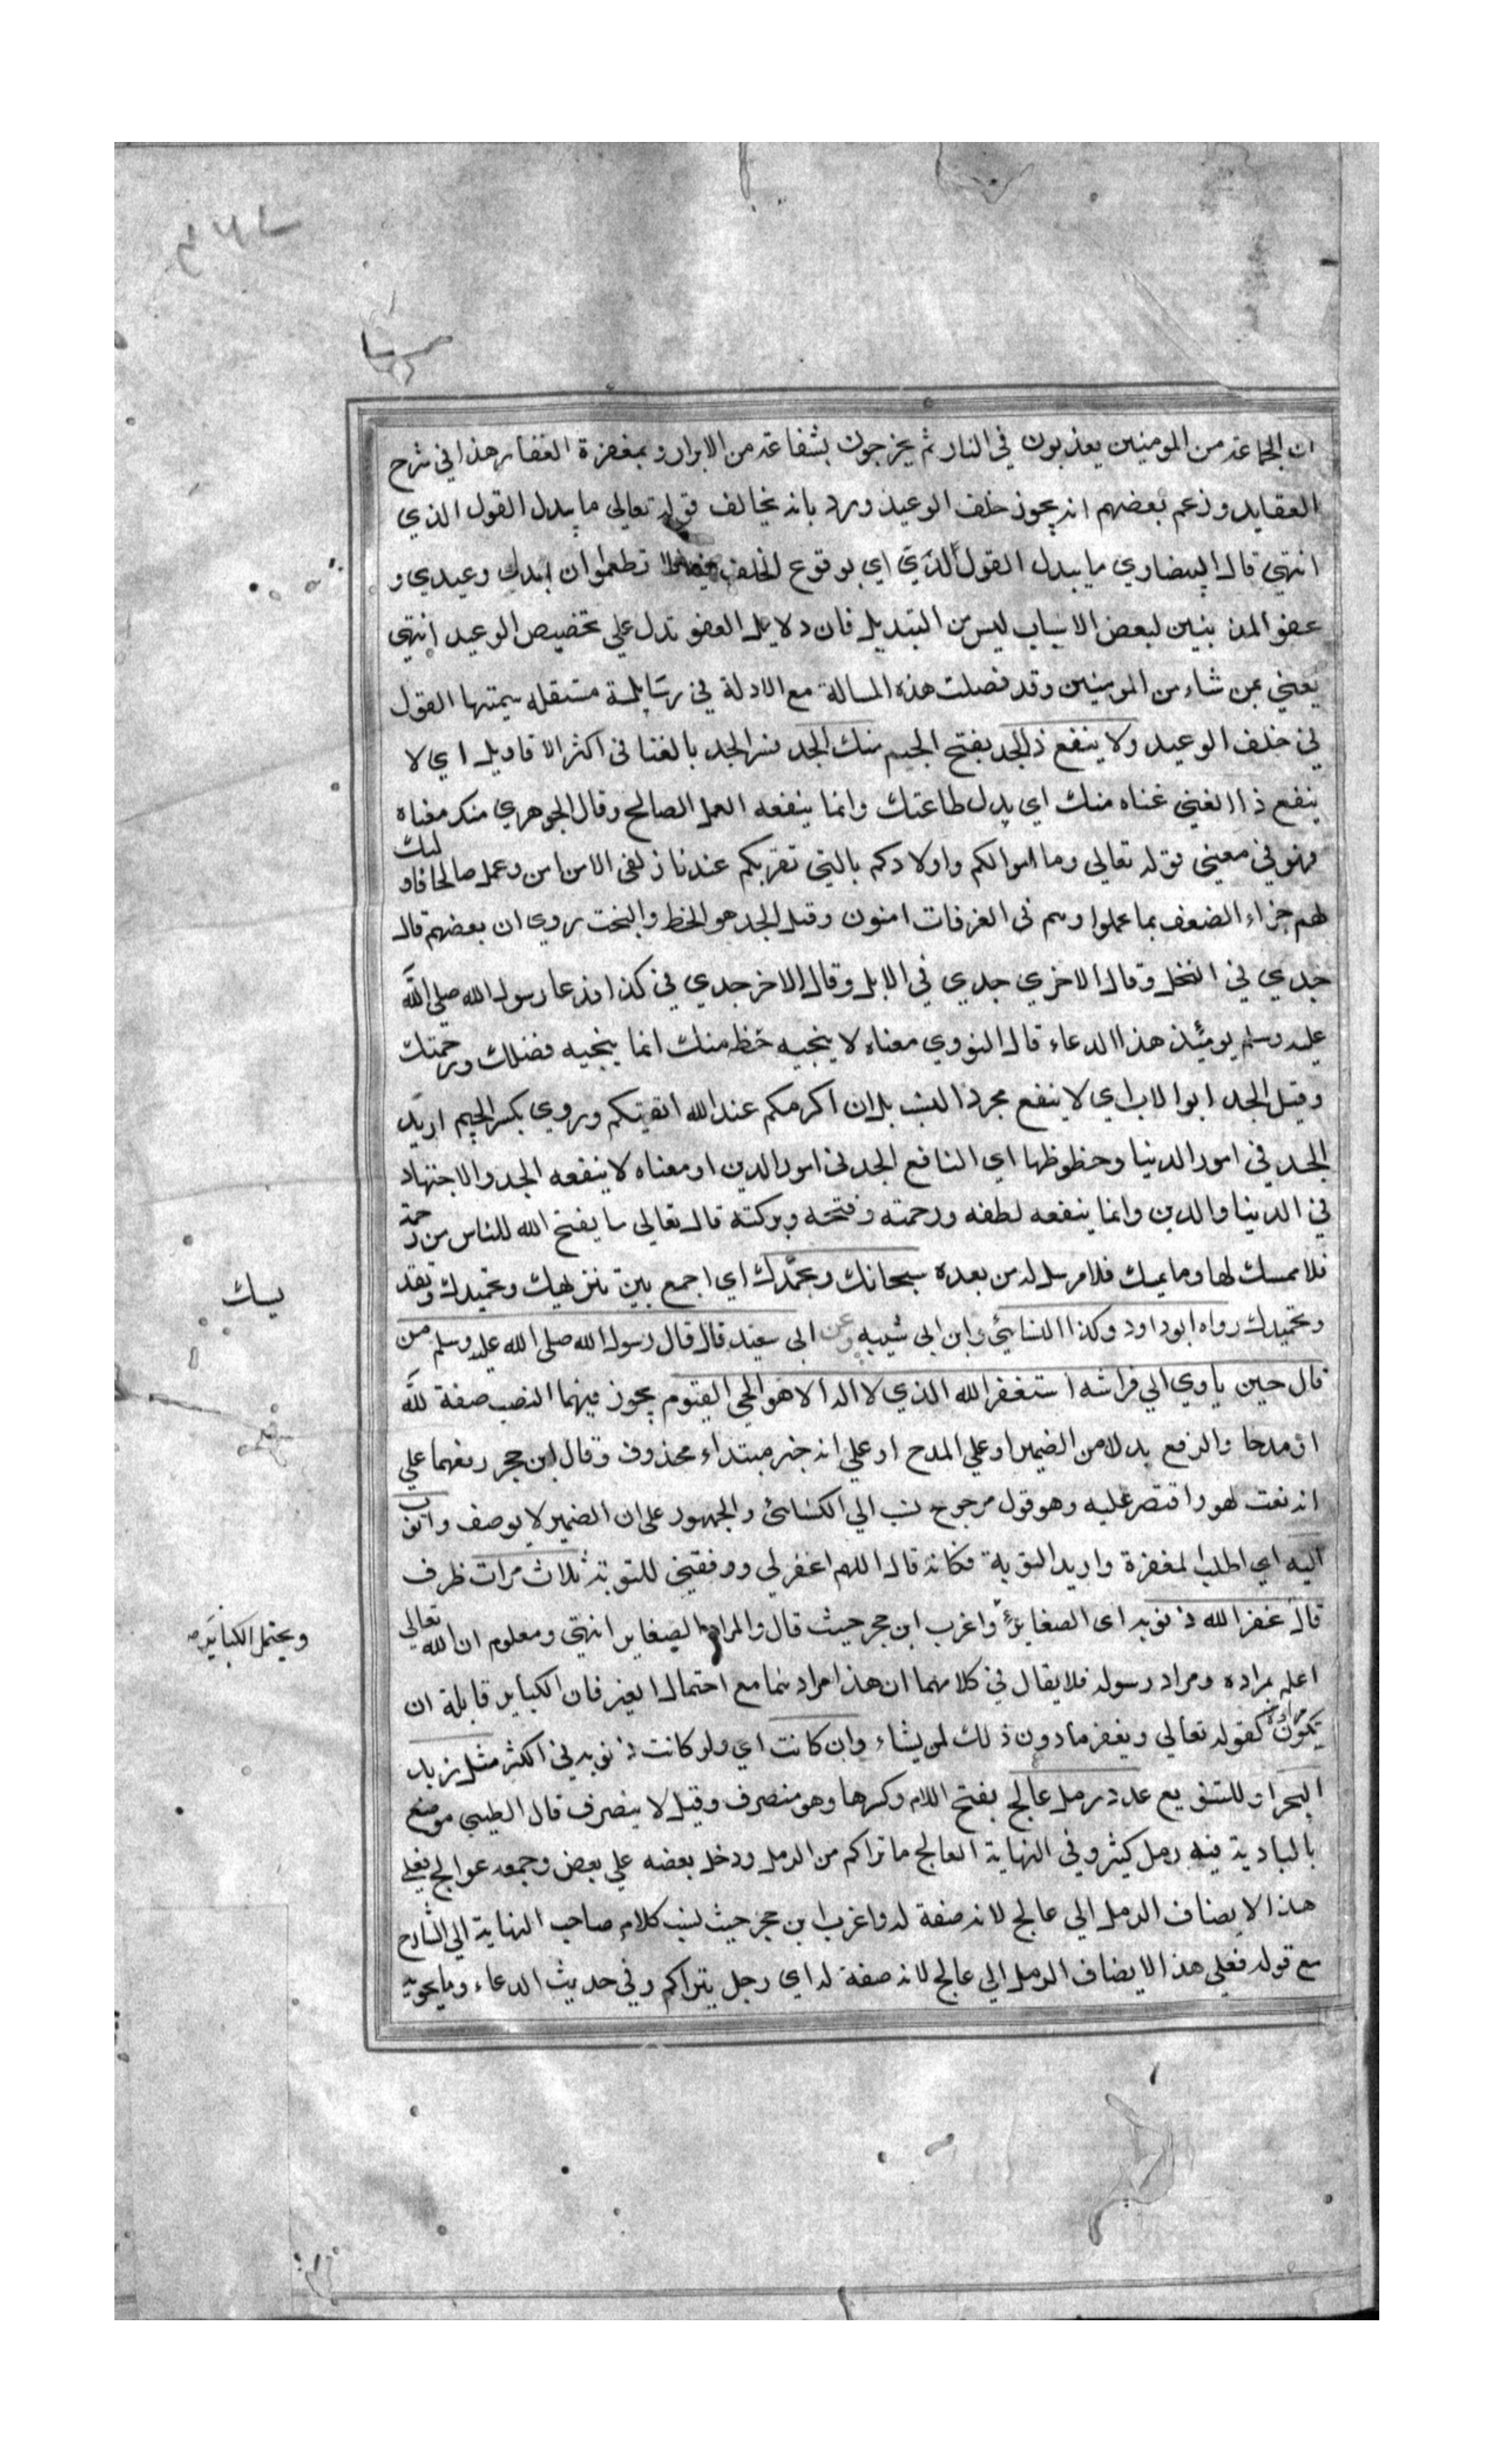 ان الجماعة من المومنين يعذبون في النار ثم يخرجون بشفاعة من الابرار وبمغفرة الغفار هذا في شرح
العقايد وزعم بعضهم انه يجوز خلف الوعيد ورد بانه يخالف قوله تعالى ما يبدل القول الذي
انتهى قال البيضاوي ما يبدل القول لدي اي بوقوع الخلف فيه فلا تطمعوا ان ابدل وعيدي و
عفو المذنبين لبعض الاسباب ليس من التبديل فان دلايل العفو تدل على تخصيص الوعيد انتهى
يعني بمن شاء من المومنين وقد فصلت هذه المسالة مع الادلة في رسالة مستقله سميتها القول
في خلف الوعيد ولا ينفع ذا الجد بفتح الجيم منك الجد فسر الجد بالغنا في اكثر الاقاويل اي لا
ينفع ذا الغني غناه منك اي بدل طاعتك وانما ينفعه العمل الصالح وقال الجوهري منك معناه
فهو في معنى قوله تعالى وما اموالكم واولادكم بالتي تقربكم عندنا زلفى الا من امن وعمل صالحا فاولئك
لهم جزاء الضعف بما عملوا وهم في الغرفات امنون وقيل الجد هو الحظ والبخت روي ان بعضهم قال
جدي في النخل وقال الاخري جدي في الابل وقال الاخر جدي في كذا فدعا رسول الله صلى الله
عليه وسلم يومئذ هذا الدعاء قال النووي معناه لا ينجيه حظ منك انما ينجيه فضلك ورحمتك
وقيل الجد ابوا الاب اي لا ينفع مجرد النسب بل ان اكرمكم عند الله اتقيكم وروي بكسر الجيم اريد
الجد في امور الدنيا وحظوظها اي النافع الجد في امور الدين او معناه لا ينفعه الجد والاجتهاد
في الدينا والدين وانما ينفعه لطفه ورحمته وفتحه وبركته قال تعالى ما يفتح الله للناس من رحمة
فلا ممسك لها وما يمسك فلا مرسل له من بعده سبحانك وبحمدك اي اجمع بين تنزيهك وتحميدك وتقد
يسك
وتحميدك رواه ابو داود وكذا النسائي وابن ابي شيبه وعن ابي سعيد قال قال رسول الله صلى الله عليه وسلم من
قال حين ياوي الي فراشه استغفر الله الذي لا اله الا هو الحي القيوم يجوز فيهما النصب صفة لله
او مدحا والرفع بدلا من الضمير او علي المدح او علي انه خبر مبتداء محذوف وقال ابن حجر رفعهما علي
انه نعت لهو واقتصر عليه وهو قول مرجوح نسب الي الكسائي والجمهور على ان الضمير لا يوصف واتوب
اليه اي اطلب المغفرة واريد التوبة فكانه قال اللهم اغفر لي ووفقيني للتوبة ثلاث مرات ظرف
قال غفر الله ذنوبه اي الصغاير واغرب ابن حجر حيث قال والمراد الصغاير انتهى ومعلوم ان الله تعالى
ويحتمل الكباير
اعلم بمراده ومراد رسوله فلا يقال في كلامهما ان هذا مرادهما مع احتمال الغير فان الكباير قابلة ان
تكون مرادة كقوله تعالى ويغفر ما دون ذلك لمن يشاء وان كانت اي ولو كانت ذنوبه في الكثر مثل زبد
البحر او للتنويع عدد رمل عالج بفتح اللام وكسرها وهو منصرف وقيل لا ينصرف قال الطيبي موضع
بالبادية فيه رمل كثير وفي النهاية العالج ما تراكم من الرمل ودخل بعضه علي بعض وجمعه عوالج فعلى
هذا لا يضاف الرمل الي عالج لانه صفة له واغرب ابن حجر حيث نسب كلام صاحب النهاية الي الشارح
مع قوله فعلى هذا لا يضاف الرمل الي عالج لانه صفة له اي رجل يتراكم وفي حديث الدعاء وما يحويه